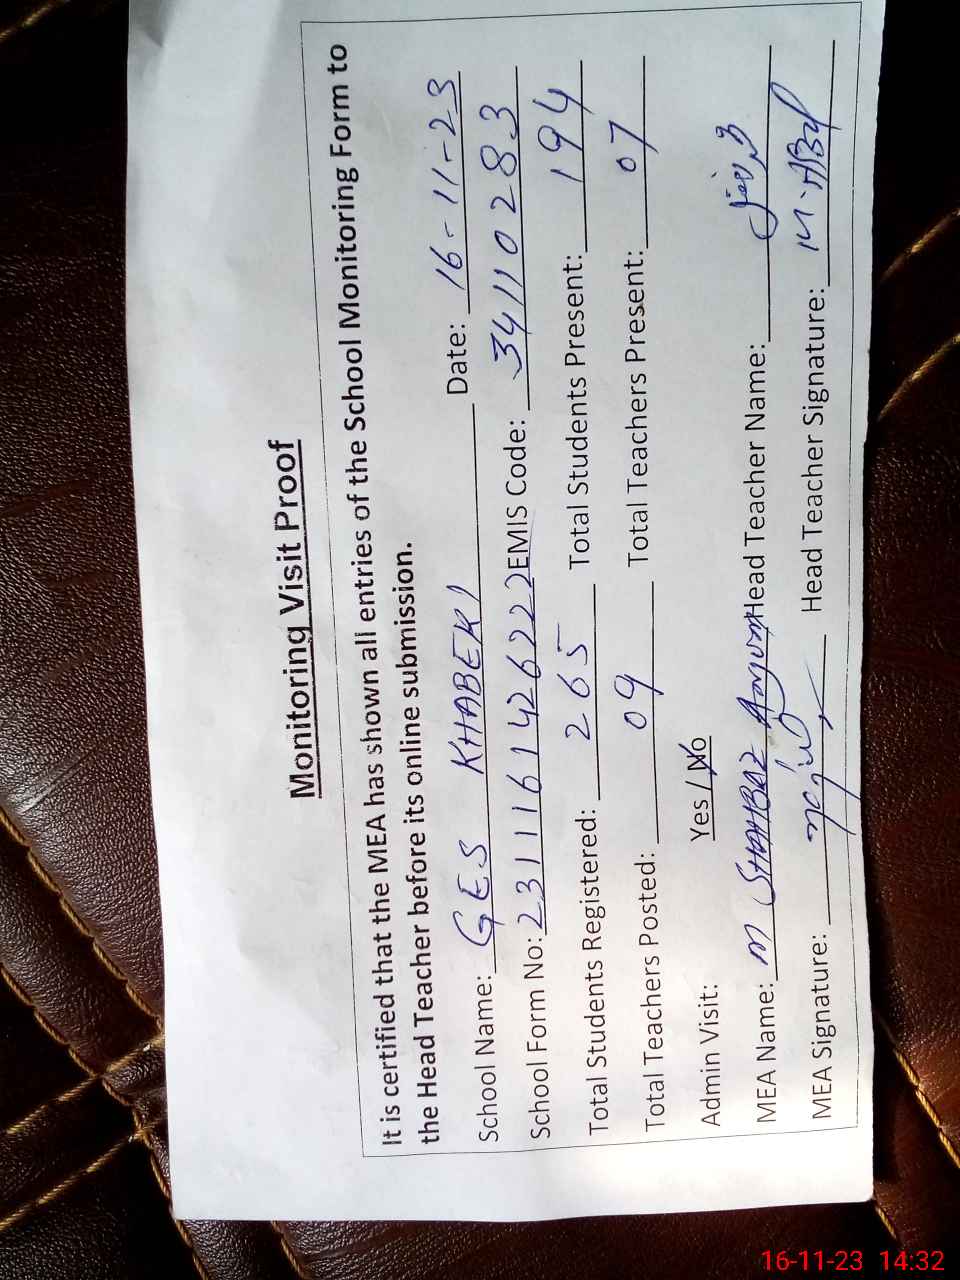 Monitoring Visit Proof
It is certified that the MEA has shown all entries of the School Monitoring Form to
the Head Teacher before its online submission.
School Name: GES KHABEKI Date: 16-11-23
School Form No: 2311161426222 EMIS Code: 34110283
Total Students Registered: 265 Total Students Present: 194
Total Teachers Posted: 09 Total Teachers Present: 07
Admin Visit: Yes / No
MEA Name: M SHAHBAZ Anjum Head Teacher Name:
MEA Signature: Head Teacher Signature:
16-11-23 14:32